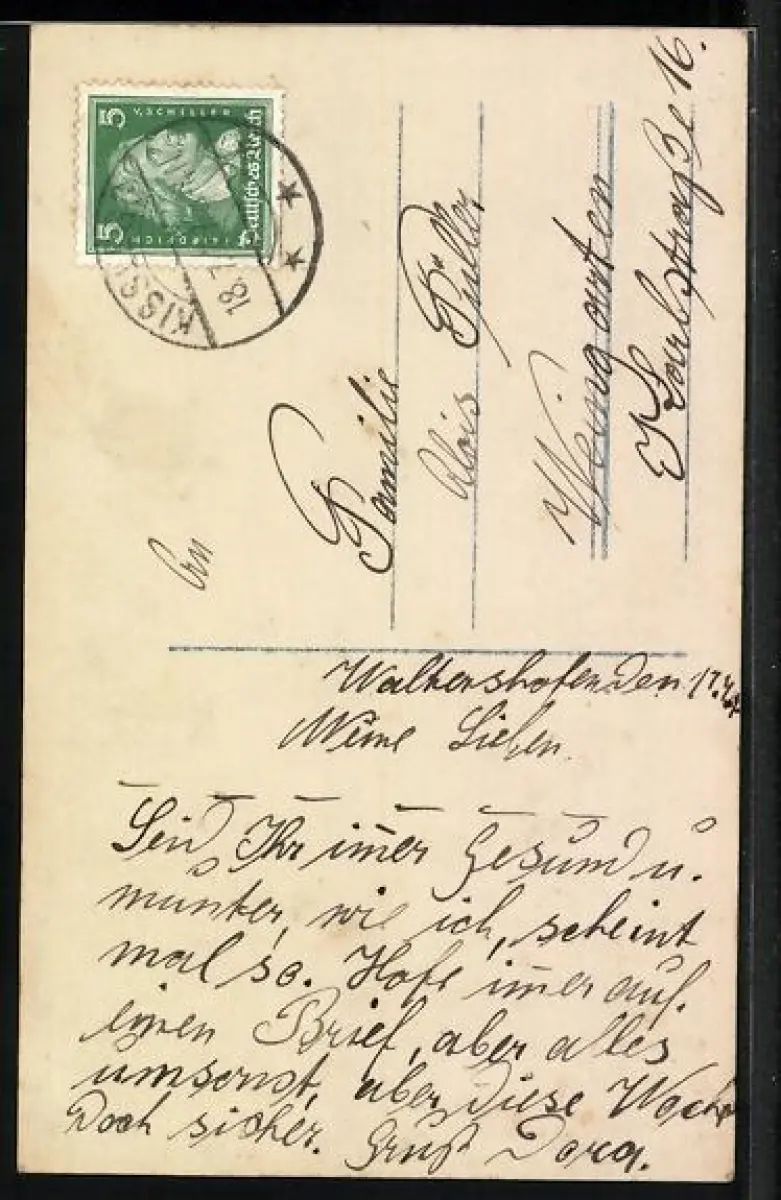 5 V. SCHILLER 5
FRIEDRICH
Deutsches Reich
KISS
18.7
An
Familie
Alois Püller
Weingarten
Karlstraße 16.
Waltershofen den 17.
Meine Lieben.
Seid Ihr im̄er Gesund u.
munter, wie ich, scheint
mal so. Hofe im̄er auf.
einen Brief, aber alles
umsonst, aber diese Woche
Doch sicher. Gruß Dora.